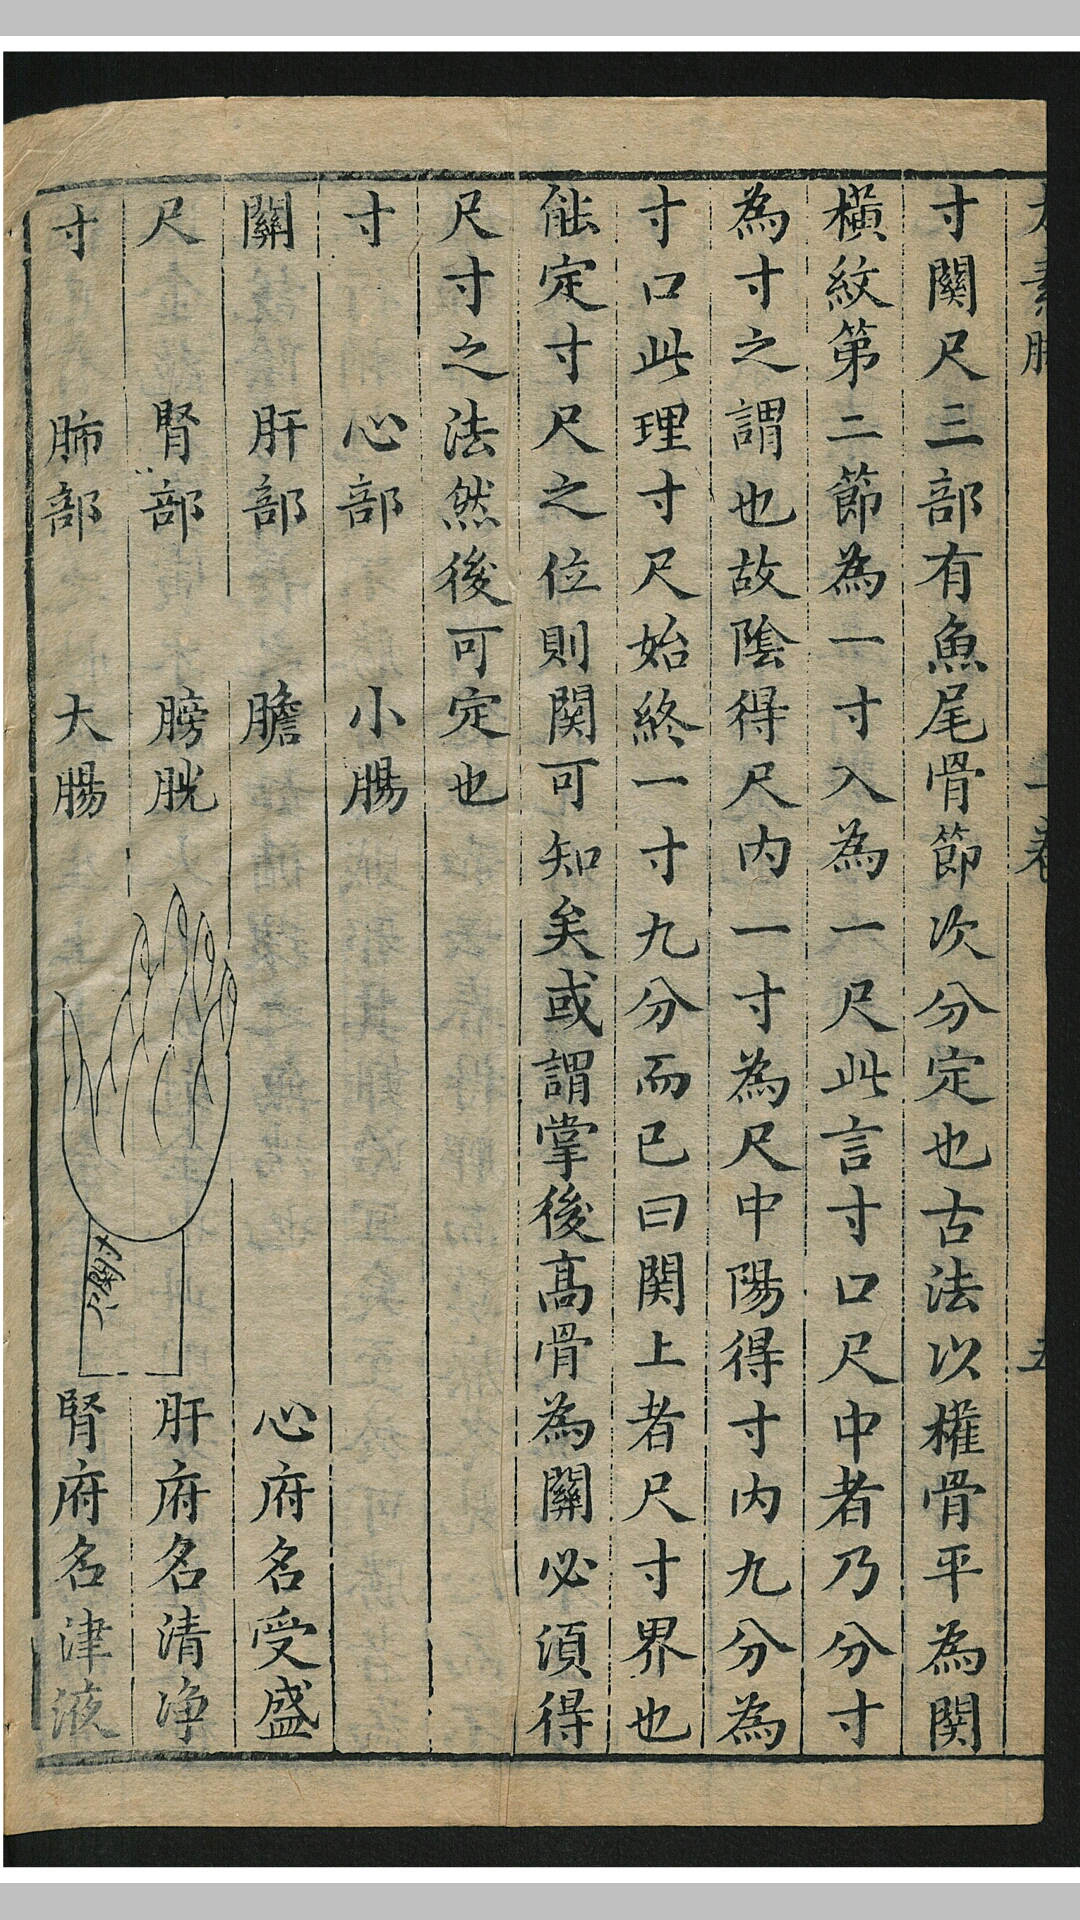 太素脉 一卷 五
寸關尺三部有魚尾骨節次分定也古法以權骨平為関
橫紋第二節為一寸入為一尺此言寸口尺中者乃分寸
為寸之謂也故陰得尺內一寸為尺中陽得寸內九分為
寸口此理寸尺始終一寸九分而已曰関上者尺寸界也
能定寸尺之位則関可知矣或謂掌後高骨為關必須得
尺寸之法然後可定也
寸 心部 小腸
關 肝部 膽 心府名受盛
尺 腎部 膀胱 肝府名清净
寸 肺部 大腸 腎府名津液
寸
關
尺